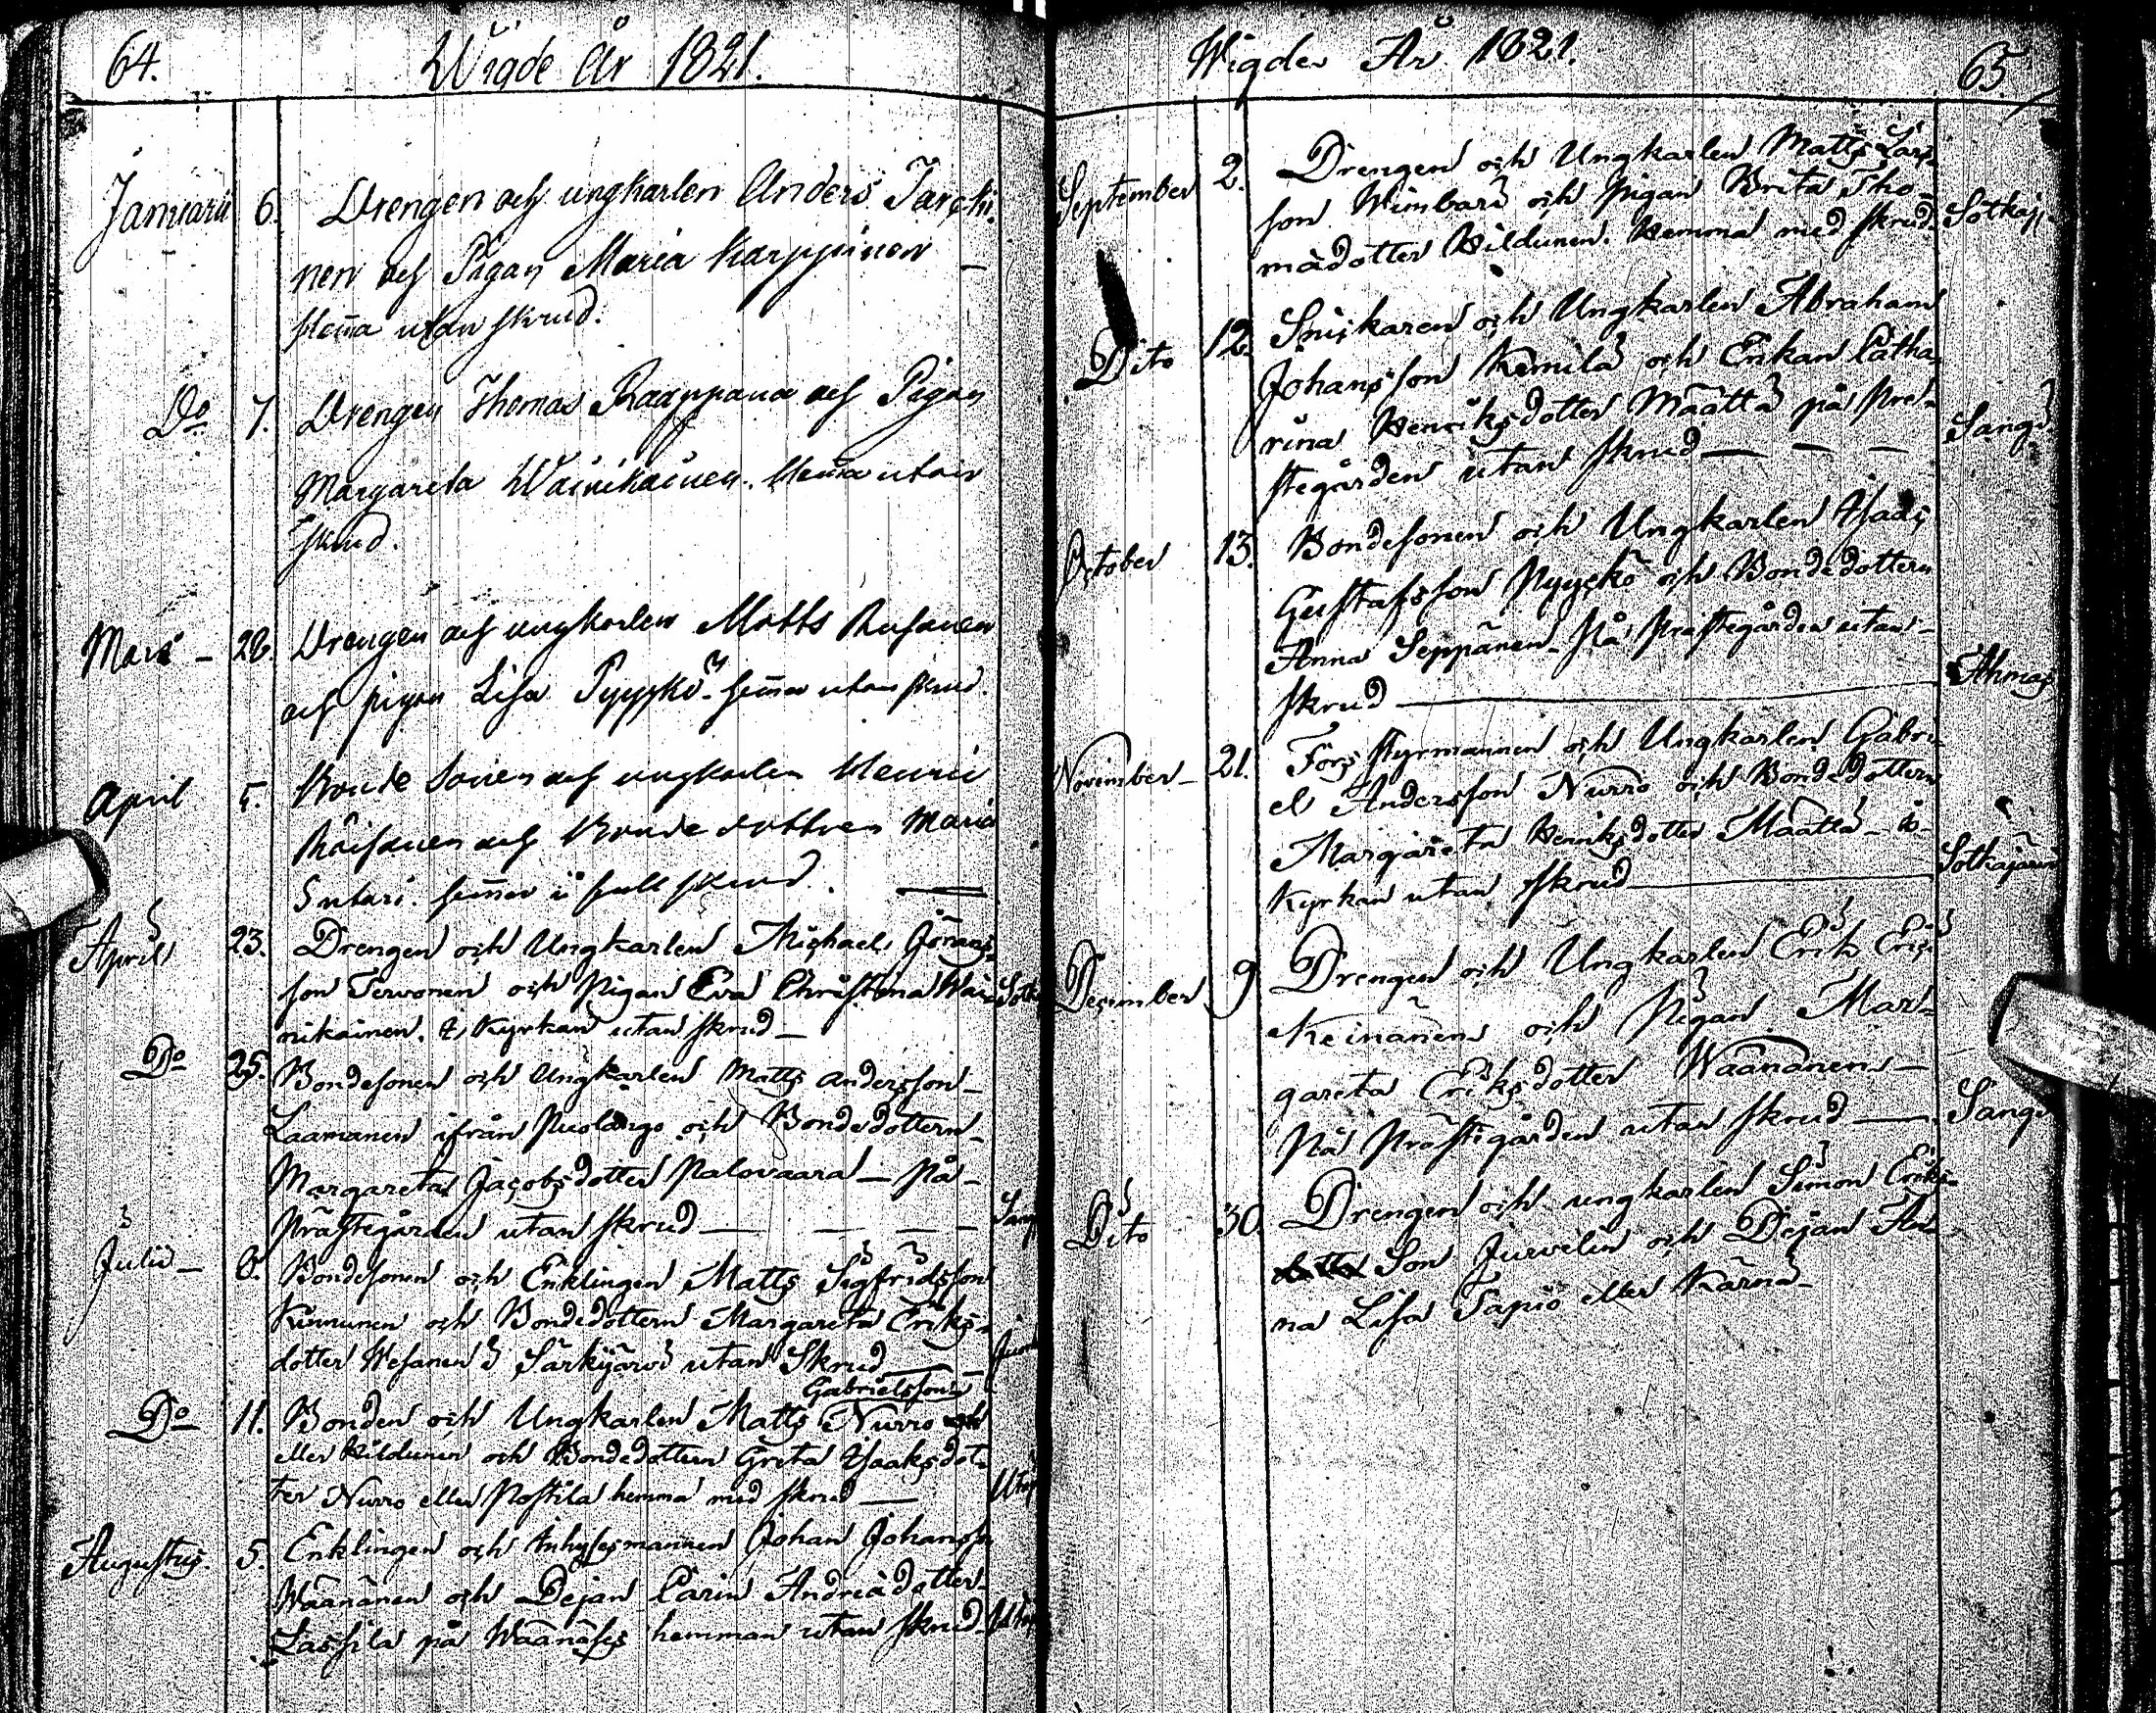 64. Wigde År 1821.
Januarii 6. Drengen och ungkarlen Anders Jarcki-
nen och Pigan Maria Karppinen –
Hema utan skrud.
Do 7. Drengen Thomas Raappana och Pigan
Margareta Wäinikäinen. Hema utan
skrud.
Mars – 28. Drengen och ungkarlen Matts
och pigan Lisa Pyyskö. hema utan skrud.
April 5. Bonde Sonen och ungkarlen Henric
Räisänen och Bonde dottren Maria
Suutari. hemma i full skrud. —
April 23. Drengen och Ungkarlen Michael Görans-
son Tervonen och Pigan Eva Christina Wäi- Sotk
nikäinen. I Kyrkan utan skrud –
Do 25. Bondesonen och Ungkarlen Matts andersson –
Laamanen ifrån Puolango och Bondedottern –
Margareta Jacobsdotter Palovaara – På –
Prästegården utan skrud — — — Sang
Julii – 8. Bondesonen och Enklingen Matts Sigfridsson
Kinnunen och Bondedottern Margareta Eriks-
dotter Wesanen i Särkijärvi utan Skrud —
Gabrielsson
Do 11. Bonden och Ungkarlen Matts Nurro och
eller Hildunen och Bondedottern Greta Isaaksdot-
ter Nurro eller Postila hemma med skrud —
Augustus. 5. Enklingen och Inhysesmannen Johan Johansson
Wäänänen och Dejan Carin Andriädotter
Lassila på Wäänäses hemman utan skrud
Wigde År 1821. 65.
September 2. Drengen och Ungkarlen Matts Lars-
son Wimbari och pigan Brita Tho- Sotkaj
mädotter Hildunen. Hemma med skrud
Dito 12. Snickaren och Ungkarlen Abraham
Johansson Kemilä och Enkan Catha-
rina Henriksdotter Määttä på Pre- Sangi
stegården utan skrud — — —
October 13. Bondesonen och Ungkarlen Isaac
Gustafsson Pyyckö och Bondedottern
Anna Seppänen. På Prästegården utan –
skrud — Ahmas
November – 21. Fors styrmannen och Ungkarlen Gabri-
el Andersson Nurro och Bondedottern
Margareta Henriksdotter Määttä – i –
Kyrkan utan skrud — Sotkajärvi
December 9 Drengen och Ungkarlen Erik Erici
Keinänen och Pigan Mar-
gareta Eriksdotter Wäänänen –
På Prästegården utan skrud — Sangi
Dito 30 Drengen och ungkarlen Simon Eriks-
dotter Son Jurvelin och Dejan An-
na Lisa Tapio eller Kärnä –